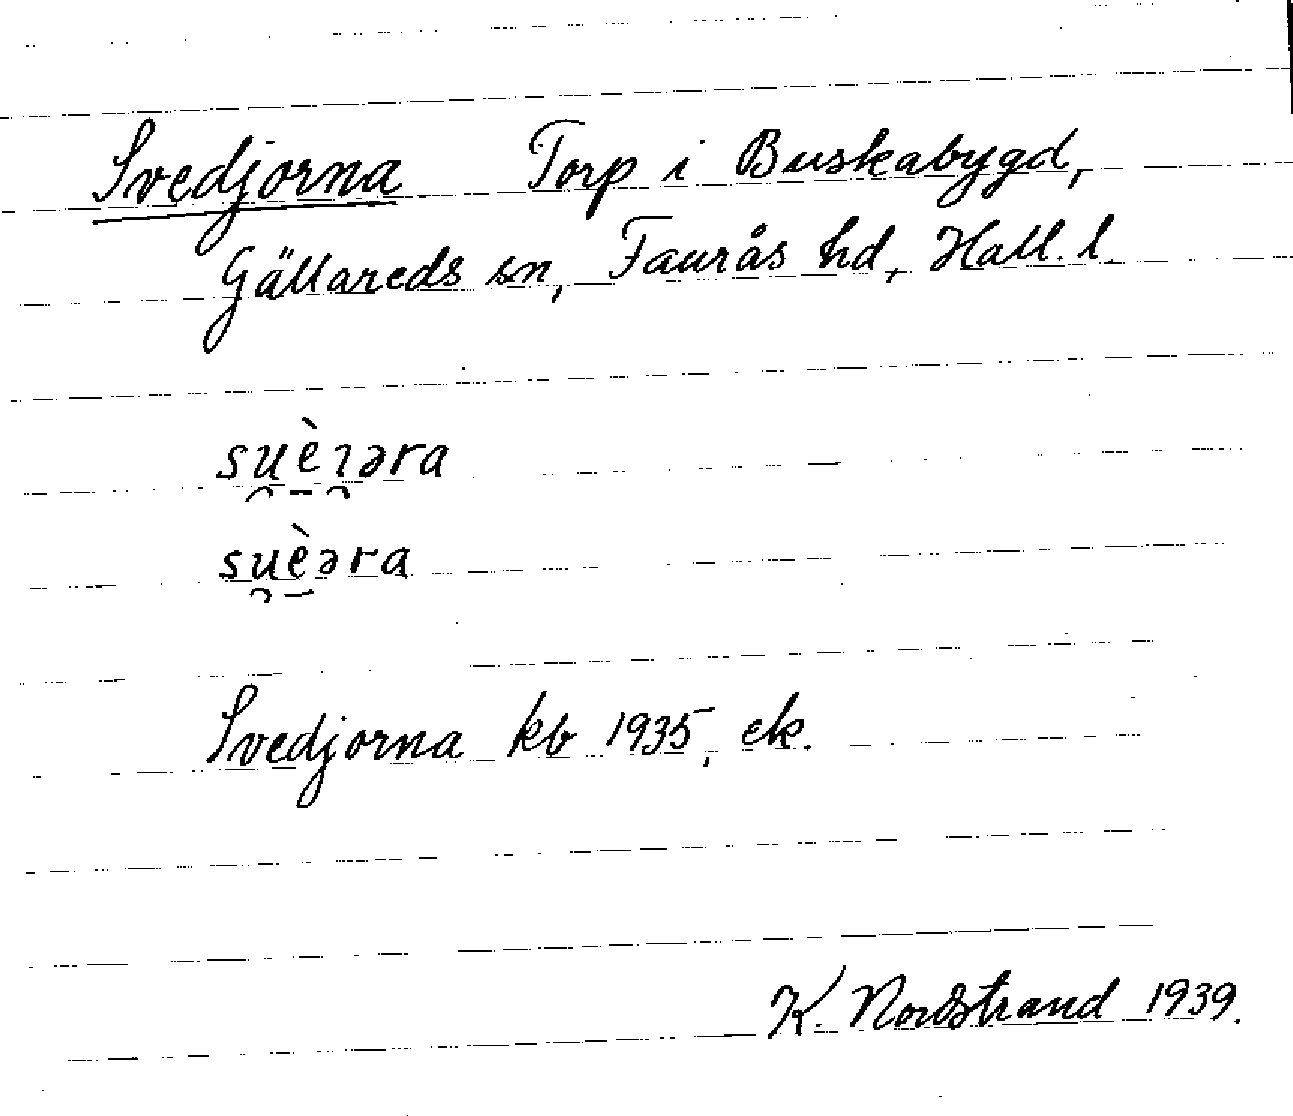 Svedjorna Torp i Buskabygd,
Gällareds sn, Faurås hd, Hall. l.
su̯è̱ı̯əra
su̯è̱əra
Svedjorna kb 1935, ek.
K. Nordstrand 1939.